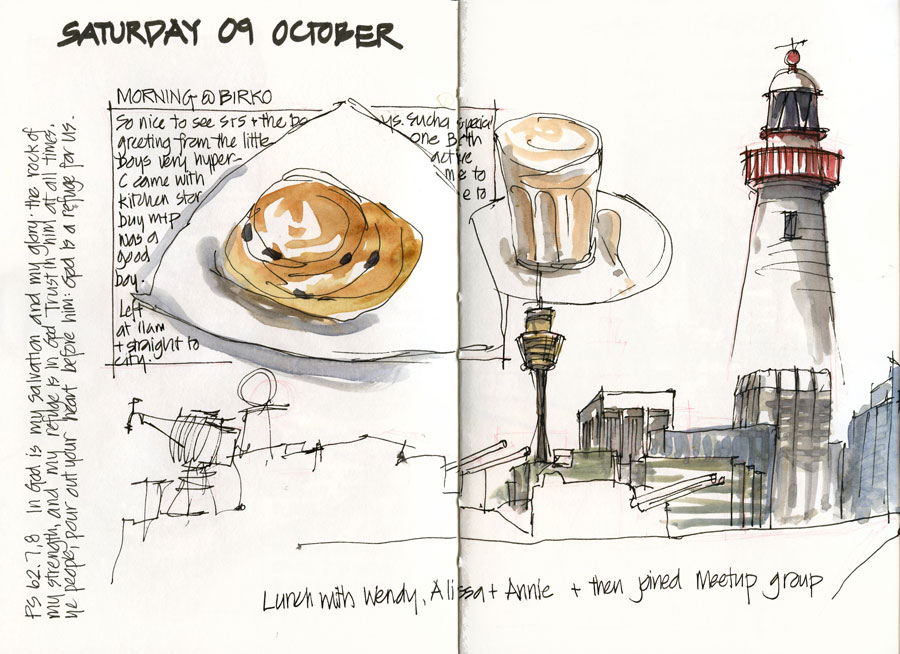 SATURDAY 09 OCTOBER
MORNING @ BIRKO
So nice to see srs + the bo ys. Such a special
greeting from the little one Both
boys very hyper- active
C came with me to
kitchen stor e to
buy m+p
was a
good
boy.
Left
at 11am
+ straight to
city.
PS 62.7,8 In God is my salvation and my glory: the rock of
my strength, and my refuge is in God Trust in him at all times,
ye people, pour out your heart before him: God is a refuge for us.
Lunch with Wendy, Alissa + Annie + then joined Meetup group